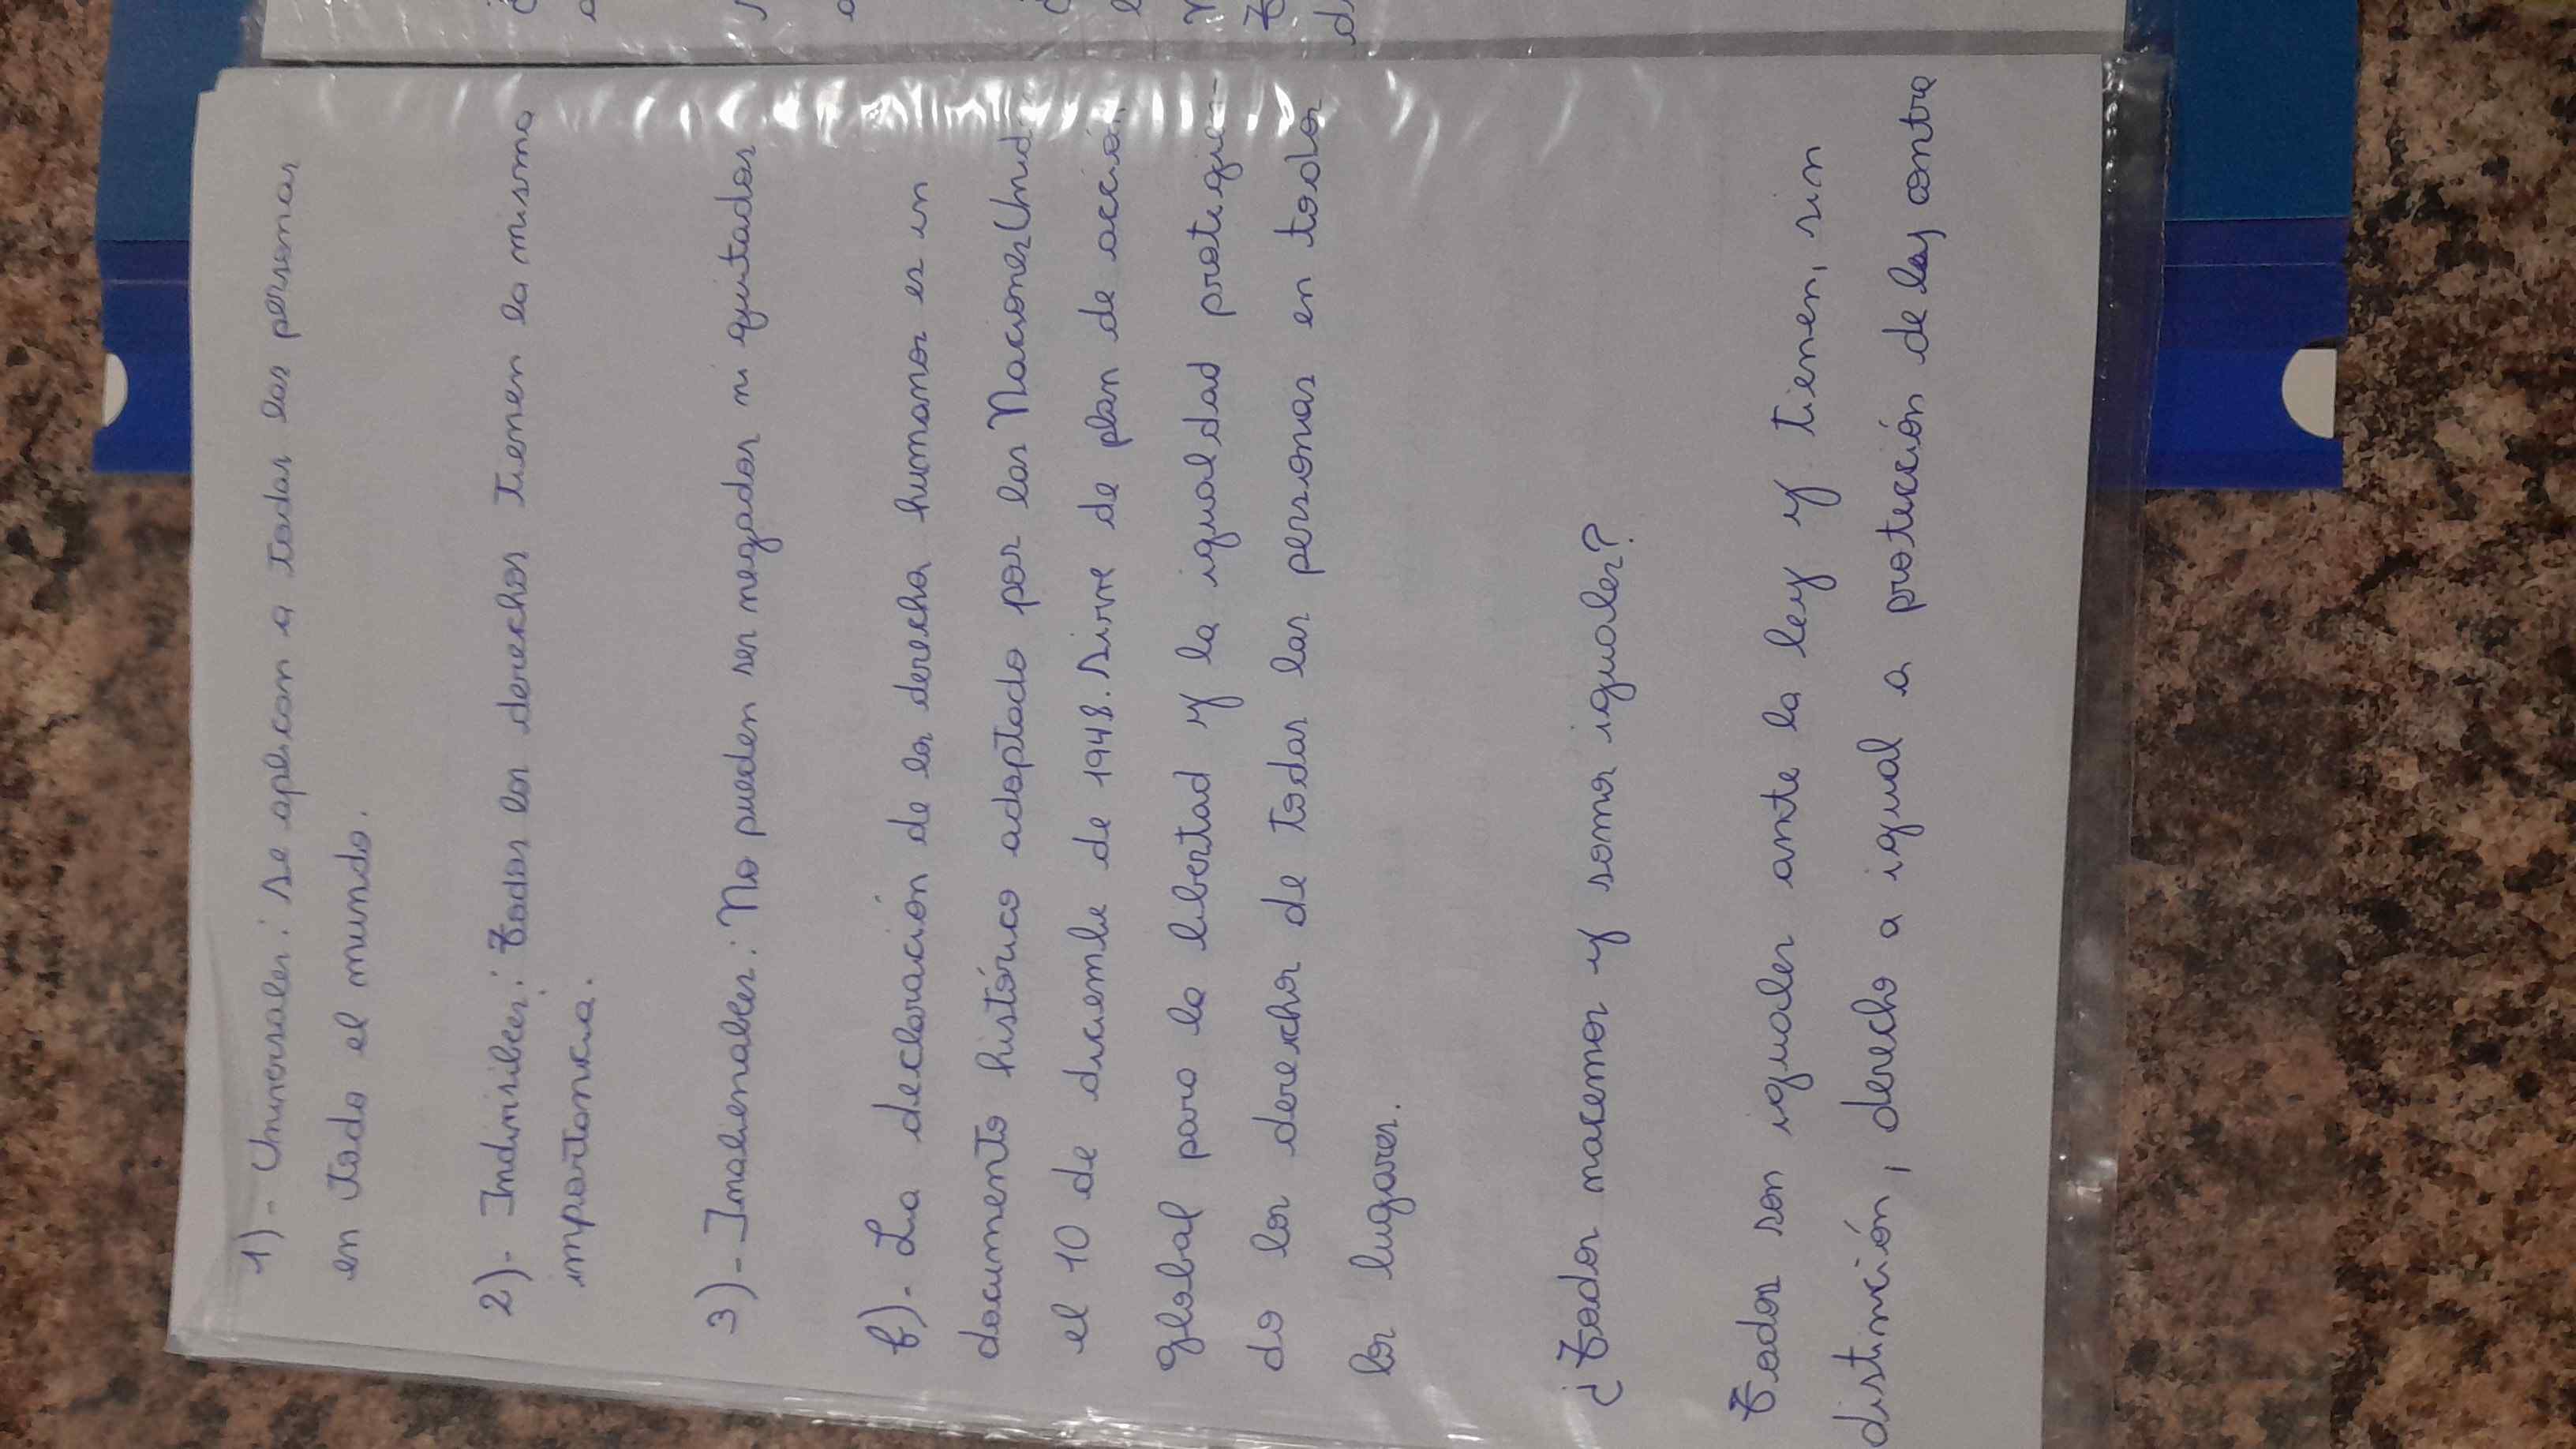 1)- Universales: se aplican a todas las personas
en todo el mundo.
2)- Indivisibles: Todos los derechos tienen la misma
importancia.
3)- Inalienables: No pueden ser negados ni quitados
b)- La declaración de los derechos humanos es un
documento histórico adoptado por las Naciones Unid
el 10 de diciembre de 1948. Sirve de plan de acción
global para la libertad y la igualdad protegien-
do los derechos de todas las personas en todos
los lugares.
¿Todos nacemos y somos iguales?
Todos son iguales ante la ley y tienen, sin
distinción, derecho a igual a protección de ley contra